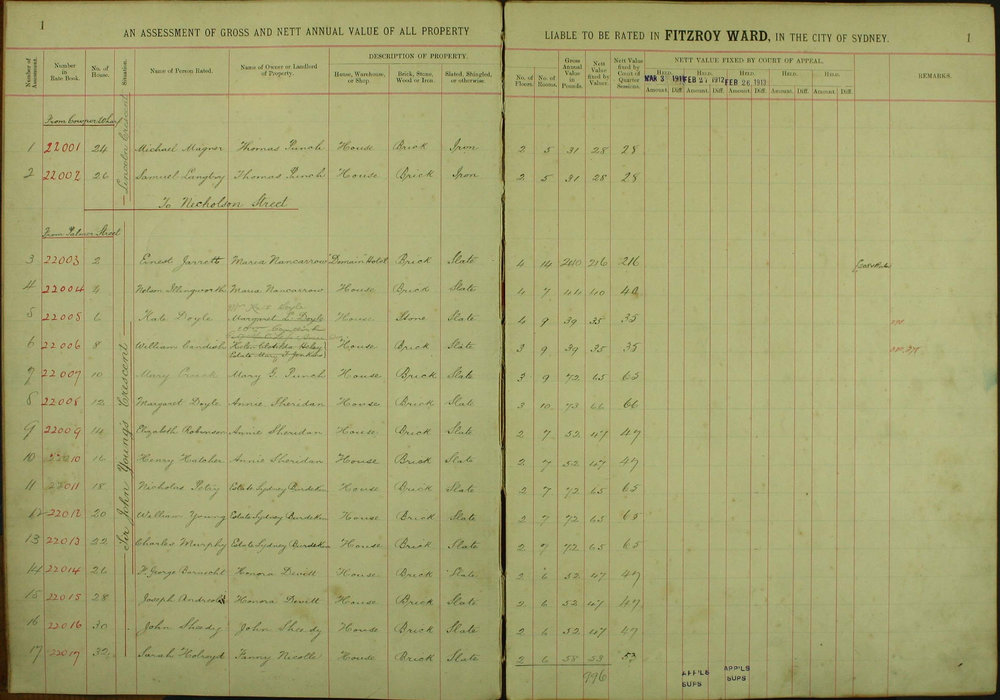 1
AN ASSESSMENT OF GROSS AND NETT ANNUAL VALUE OF ALL PROPERTY
LIABLE TO BE RATED IN FITZROY WARD, IN THE CITY OF SYDNEY.
1
Number of Assessment.
Number in Rate Book.
No. of House.
Situation.
Name of Person Rated.
Name of Owner or Landlord of Property.
DESCRIPTION OF PROPERTY.
House, Warehouse, or Shop.
Brick, Stone, Wood or Iron.
Slated, Shingled, or otherwise.
No. of Floors.
No. of Rooms.
Gross Annual Value in Pounds.
Nett Value fixed by Valuer.
Nett Value fixed by Court of Quarter Sessions.
NETT VALUE FIXED BY COURT OF APPEAL.
Held. Held. Held. Held. Held.
MAR 3 1911 FEB 27 1912 FEB 26 1913
Amount. Diff. Amount. Diff. Amount. Diff. Amount. Diff. Amount. Diff.
REMARKS.
From Cowper Wharf
Lincoln Crescent
1 22001 24 Michael Magner Thomas Punch House Brick Iron 2 5 31 28 28
2 22002 26 Samuel Langtry Thomas Punch House Brick Iron 2 5 31 28 28
To Nicholson Street
From Palmer Street
Sir John Young's Crescent
3 22003 2 Ernest Jarrett Maria Nancarrow "Domain Hotel" Brick Slate 4 14 240 216 216
4 22004 4 Nelson Illingworth Maria Nancarrow House Brick Slate 4 7 44 40 40
5 22005 6 Kate Doyle Margaret L. Doyle House Stone Slate 4 9 39 35 35
6 22006 8 William Candish Helen Clotilda Heley House Brick Slate 3 9 39 35 35
Estate Mary F. Jenkins
7 22007 10 Mary Mary G. Punch House Brick Slate 3 9 72 65 65
8 22008 12 Margaret Doyle Annie Sheridan House Brick Slate 3 10 73 66 66
9 22009 14 Elizabeth Robinson Annie Sheridan House Brick Slate 2 7 52 47 47
10 22010 16 Henry Hatcher Annie Sheridan House Brick Slate 2 7 52 47 47
11 22011 18 Nicholas Estate Sydney Burdekin House Brick Slate 2 7 72 65 65
12 22012 20 William Young Estate Sydney Burdekin House Brick Slate 2 7 72 65 65
13 22013 22 Charles Murphy Estate Sydney Burdekin House Brick Slate 2 7 72 65 65
14 22014 26 F. George Honora Dewitt House Brick Slate 2 6 52 47 47
15 22015 28 Joseph Honora Dewitt House Brick Slate 2 6 52 47 47
16 22016 30 John Sheedy John Sheedy House Brick Slate 2 6 52 47 47
17 22017 32 Sarah Holroyd Fanny Nicolle House Brick Slate 2 6 58 53 53
996
APP'LS
SUPS
APP'LS
SUPS